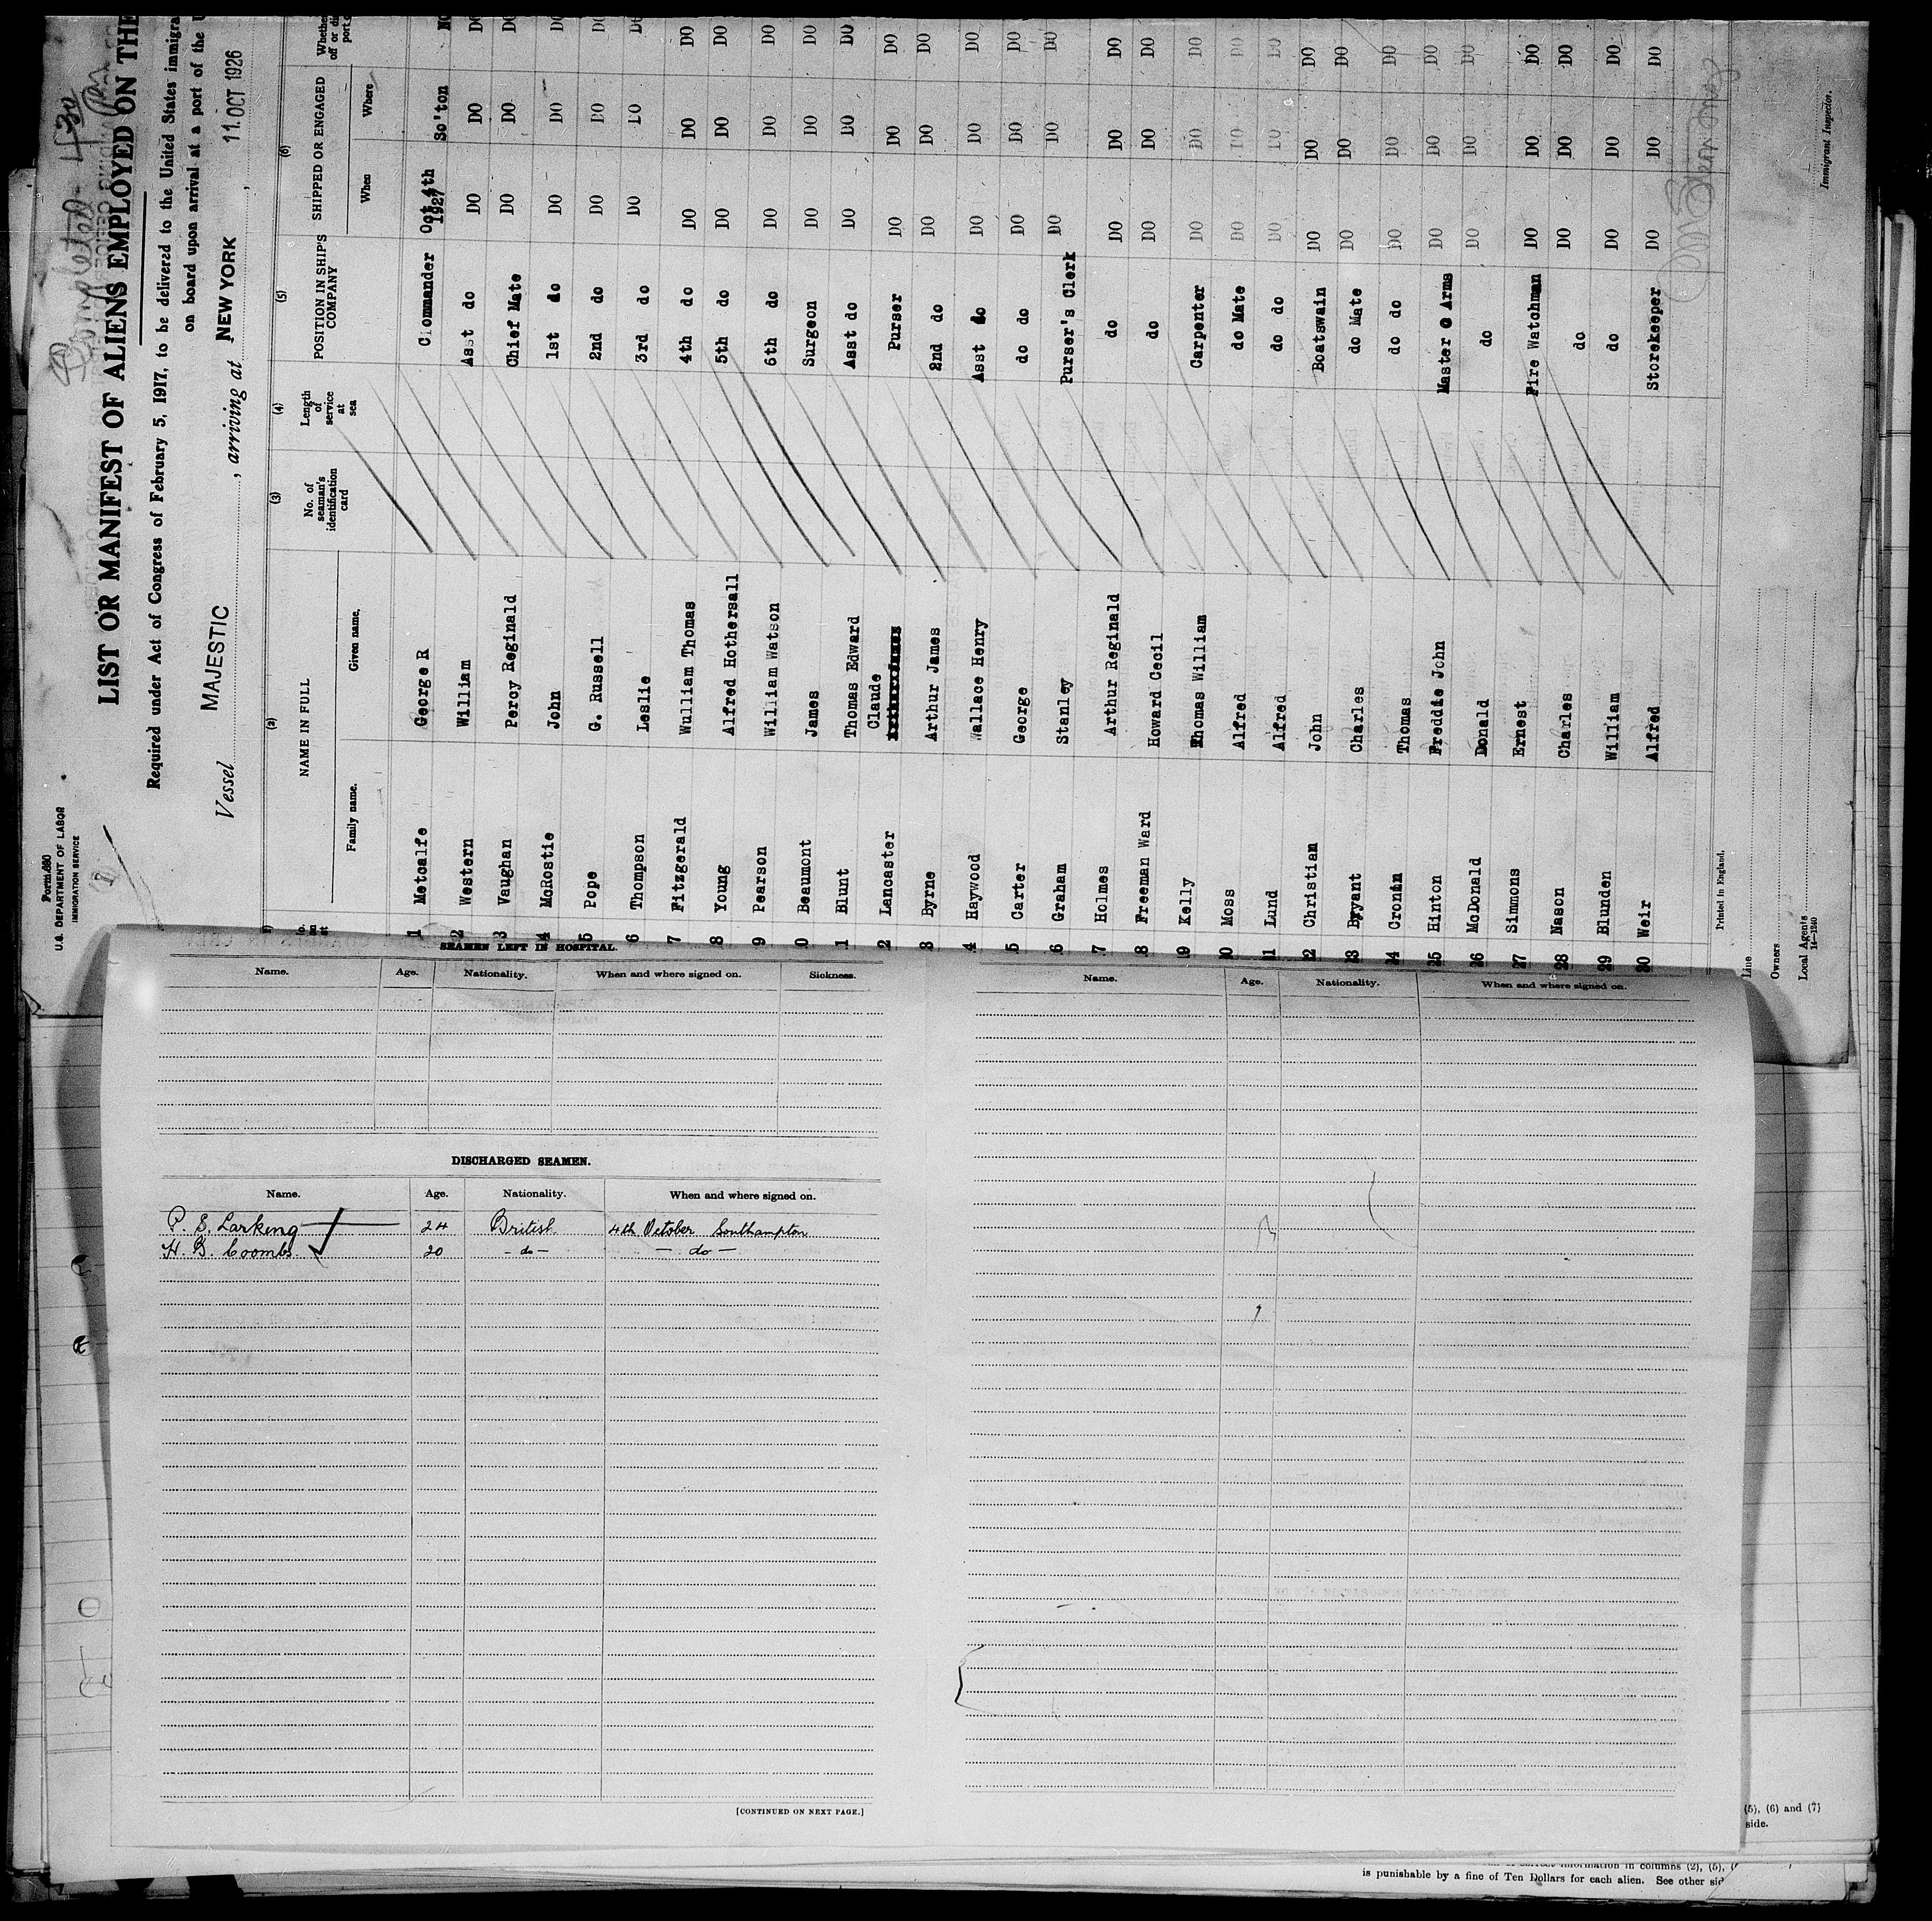 Completed 430
Form 680
U.S. DEPARTMENT OF LABOR
IMMIGRATION SERVICE
LIST OR MANIFEST OF ALIENS EMPLOYED ON THE
Required under Act of Congress of February 5, 1917, to be delivered to the United States immigra
on board upon arrival at a port of the U
Vessel MAJESTIC, arriving at NEW YORK, 11. OCT 1926
(2) (3) (4) (5) (6)
NAME IN FULL No. of seaman's identification card Length of service at sea POSITION IN SHIP'S COMPANY SHIPPED OR ENGAGED Whethe
Family name. Given name. When Where off or di port o
1 Metcalfe George R Commander Oct 4th 1927 So'ton NO
2 Western William Asst do DO DO DO
3 Vaughan Percy Reginald Chief Mate DO DO DO
4 McRostie John 1st do DO DO DO
5 Pope G. Russell 2nd do DO DO DO
6 Thompson Leslie 3rd do DO DO DO
7 Fitzgerald Wulliam Thomas 4th do DO DO DO
8 Young Alfred Hothersall 5th do DO DO DO
9 Pearson William Watson 6th do DO DO DO
0 Beaumont James Surgeon DO DO DO
1 Blunt Thomas Edward Asst do DO DO DO
2 Lancaster Claude Purser DO DO DO
3 Byrne Arthur James 2nd do DO DO DO
4 Haywood Wallace Henry Asst do DO DO DO
5 Carter George do do DO DO DO
6 Graham Stanley Purser's Clerk DO DO DO
7 Holmes Arthur Reginald do DO DO DO
8 Freeman Ward Howard Cecil do DO DO DO
19 Kelly Thomas William Carpenter DO DO DO
20 Moss Alfred do Mate DO DO DO
21 Lund Alfred do do DO DO DO
22 Christian John Boatswain DO DO DO
23 Bryant Charles do Mate DO DO DO
24 Cronin Thomas do do DO DO DO
25 Hinton Freddie John Master @ Arms DO DO DO
26 McDonald Donald do DO DO DO
27 Simmons Ernest Fire Watchman DO DO DO
28 Nason Charles do DO DO DO
29 Blunden William do DO DO DO
30 Weir Alfred Storekeeper DO DO DO
Printed in England.
Line
Owners
Local Agents
14—1240
Immigrant Inspector.
SEAMEN LEFT IN HOSPITAL.
Name. Age. Nationality. When and where signed on. Sickness.
DISCHARGED SEAMEN.
Name. Age. Nationality. When and where signed on.
P. S. Larking 24 British 4th October Southampton
H. B. Coombs 20 - do - - do -
[CONTINUED ON NEXT PAGE.]
Name. Age. Nationality. When and where signed on.
(5), (6) and (7)
side.
information in columns (2), (5),
is punishable by a fine of Ten Dollars for each alien. See other sid